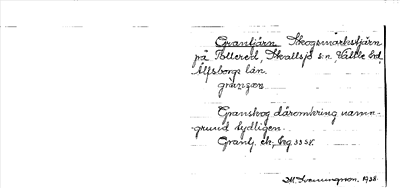 Grantjärn Skogsmarkstjärn
på Tollered, Skallsjö sn, Vättle hd,
Älfsborgs län.
grànṣæn
Granskog däromkring namn-
grund tydligen.
Grantj. ek, beg 33 SV.
M. Svenungsson. 1928